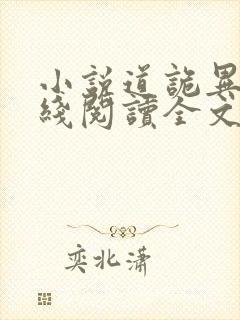 小説道詭異
綫閱讀全文
奕北瀟